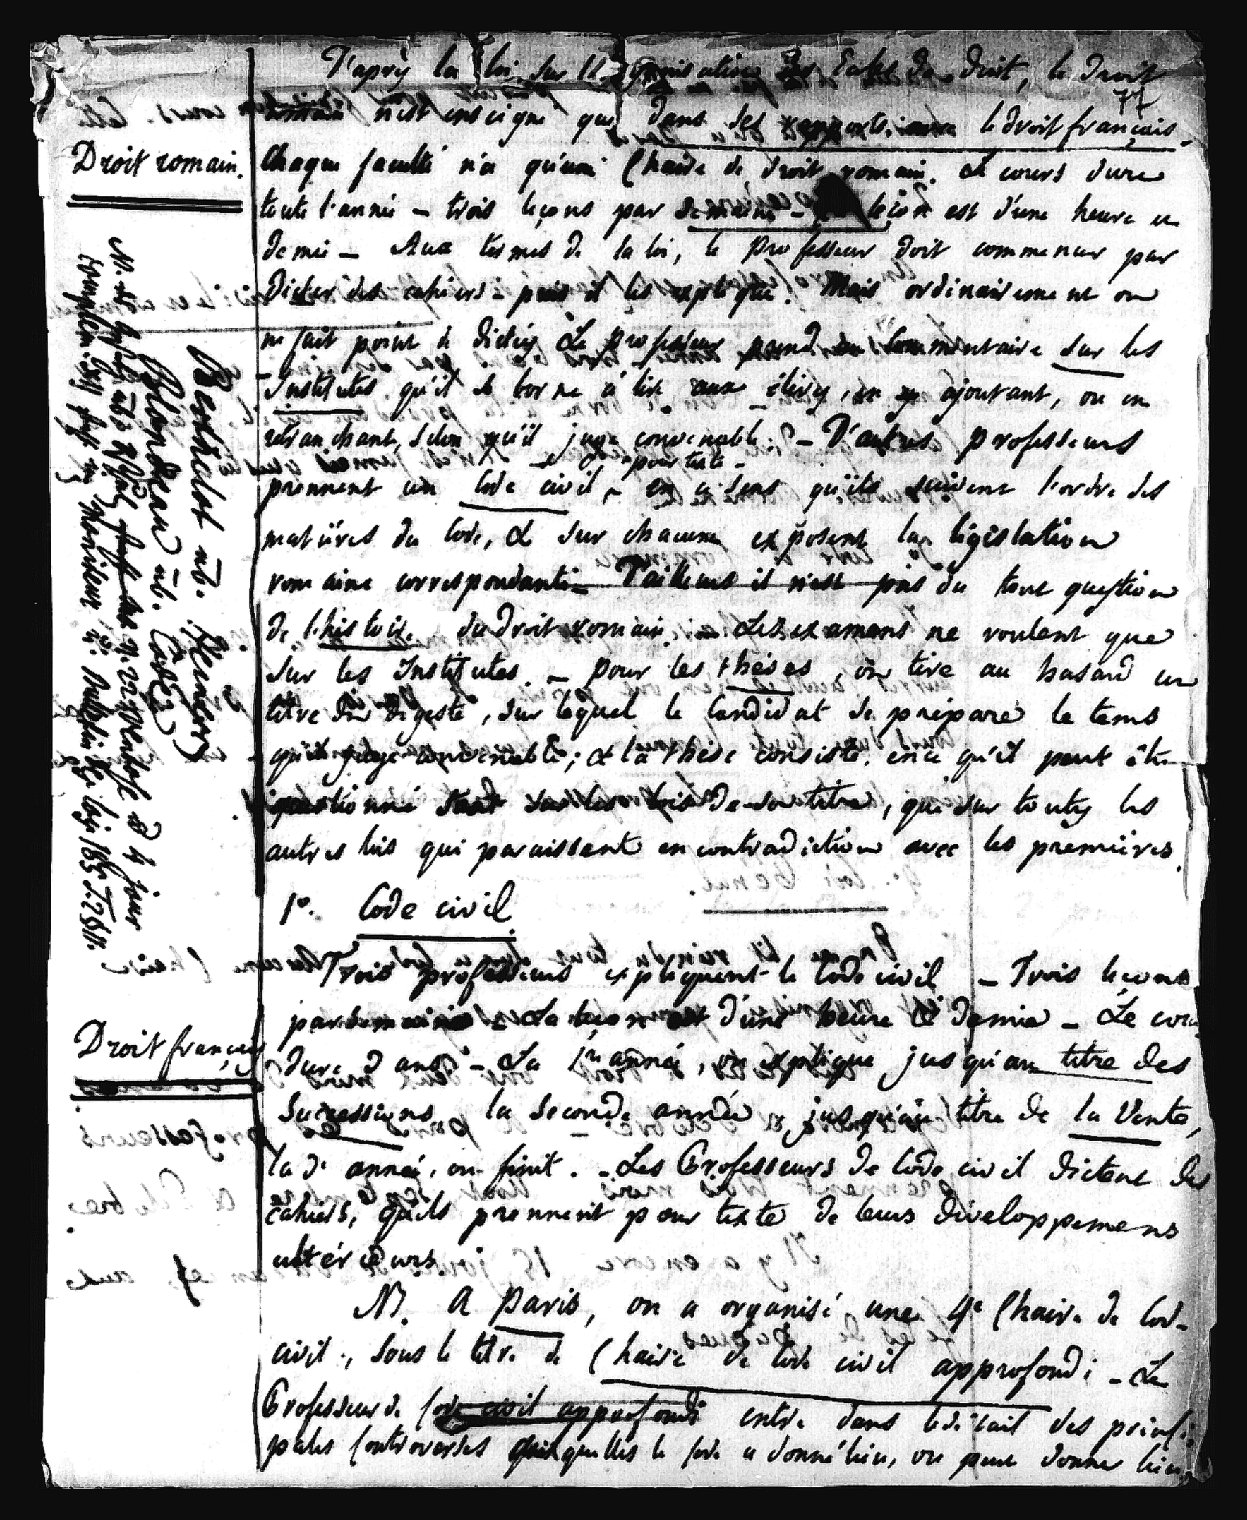 77
D'après la loi sur l'organisation des Ecoles de droit, le Droit
romain n'est enseigné que dans ses rapports avec le droit français.
Droit romain.
Chaque faculté n'a qu'une Chaire de droit romain. Le cours dure
toute l'année – trois leçons par semaine – la leçon est d'une heure et
demie – Aux termes de la loi, le professeur doit commencer par
dicter des cahiers – puis il les explique. Mais ordinairement on
ne fait point de dictées. Le professeur prend un Commentaire sur les
Institutes qu'il se borne à lire aux élèves, en y ajoutant, ou en
retranchant, selon qu'il juge convenable. – D'autres professeurs
pour texte
prennent un Code civil, en ce sens qu'ils suivent l'ordre des
matières du Code, & sur chacune exposent la législation
romaine correspondante – D'ailleurs il n'est pas du tout question
de l'histoire du Droit romain. – Les examens ne roulent que
sur les Institutes. – pour les thèses, on tire au hasard un
titre du digeste, sur lequel le Candidat se prépare le tems
qu'il juge convenable; & la thèse consiste en ce qu'il peut être
questionné tant sur les lois de son titre, que sur toutes les
autres lois qui paraissent en contradiction avec les premières.
1º. Code civil.
Trois professeurs expliquent le Code civil – Trois leçons
par semaine – La leçon est d'une heure & demie – Le cours
Droit français
dure 3 ans – La 1re année, on explique jusqu'au titre des
Successions, la Seconde année, jusqu'au titre de la Vente,
la 3e année, on finit. – Les Professeurs de Code civil dictent des
cahiers, qu'ils prennent pour texte de leurs développemens
ultérieurs
NB. A Paris, on a organisé une 4e Chaire de Code
civil, sous le titre de Chaire de Code civil approfondi – Le
Professeur de Code civil approfondi entre dans le détail des princi-
pales Controverses auxquelles le Code a donné lieu, ou peut donner lieu